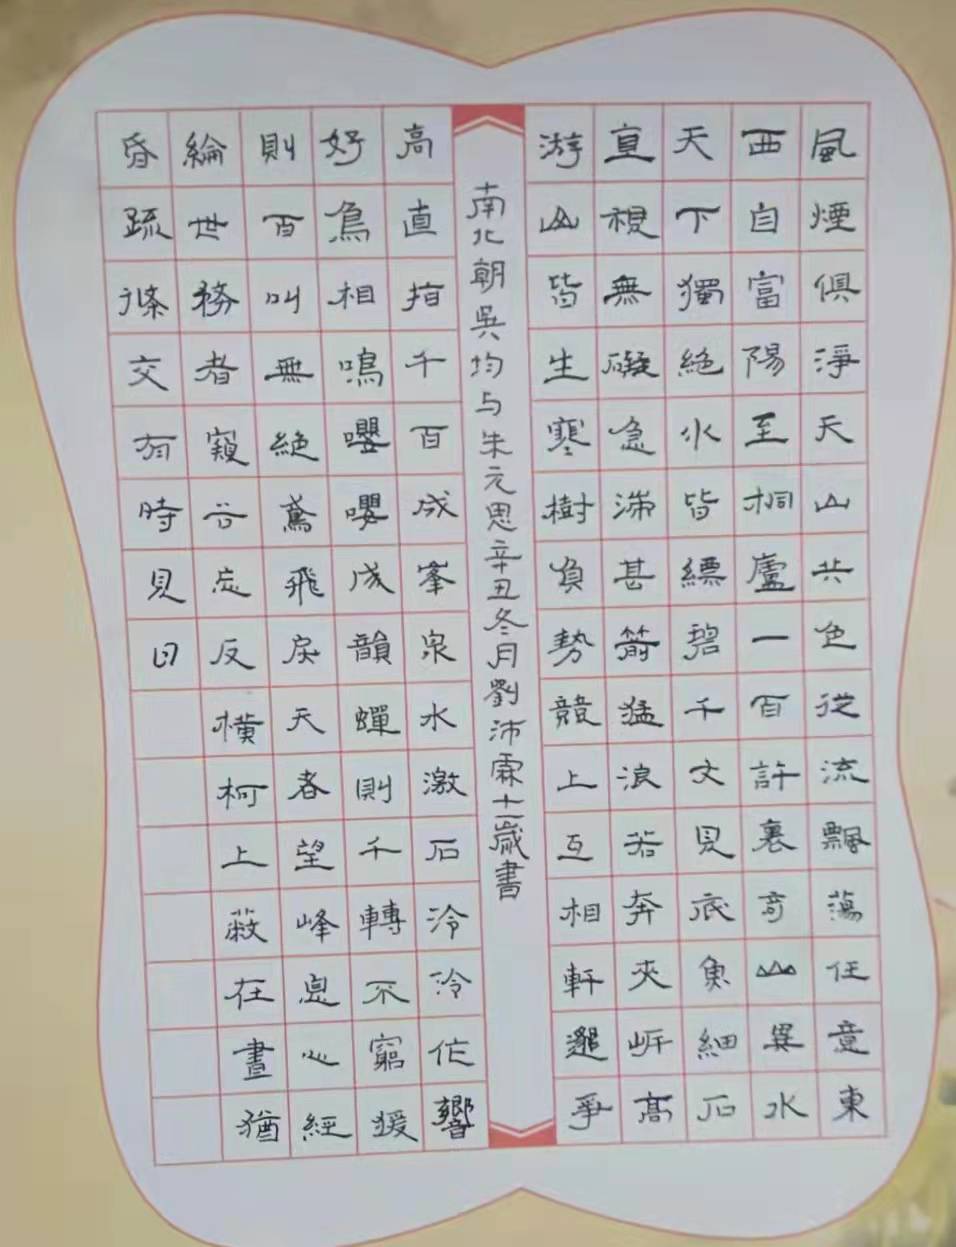 風煙俱淨天山共色從流飄蕩任意東
西自富陽至桐廬一百許裏奇山異水
天下獨絕水皆縹碧千丈見底魚細石
直視無礙急湍甚箭猛浪若奔夾岍高
游山皆生寒樹負勢競上互相軒邈爭
南北朝吳均与朱元思辛丑冬月劉沛霖十一歲書
高直指千百成峯泉水激石泠泠作響
好鳥相鳴嚶嚶成韻蟬則千轉不窮猨
則百叫無絕鳶飛戾天者望峰息心經
綸世務者窺谷忘反橫柯上蔽在晝猶
昏疏條交有時見日